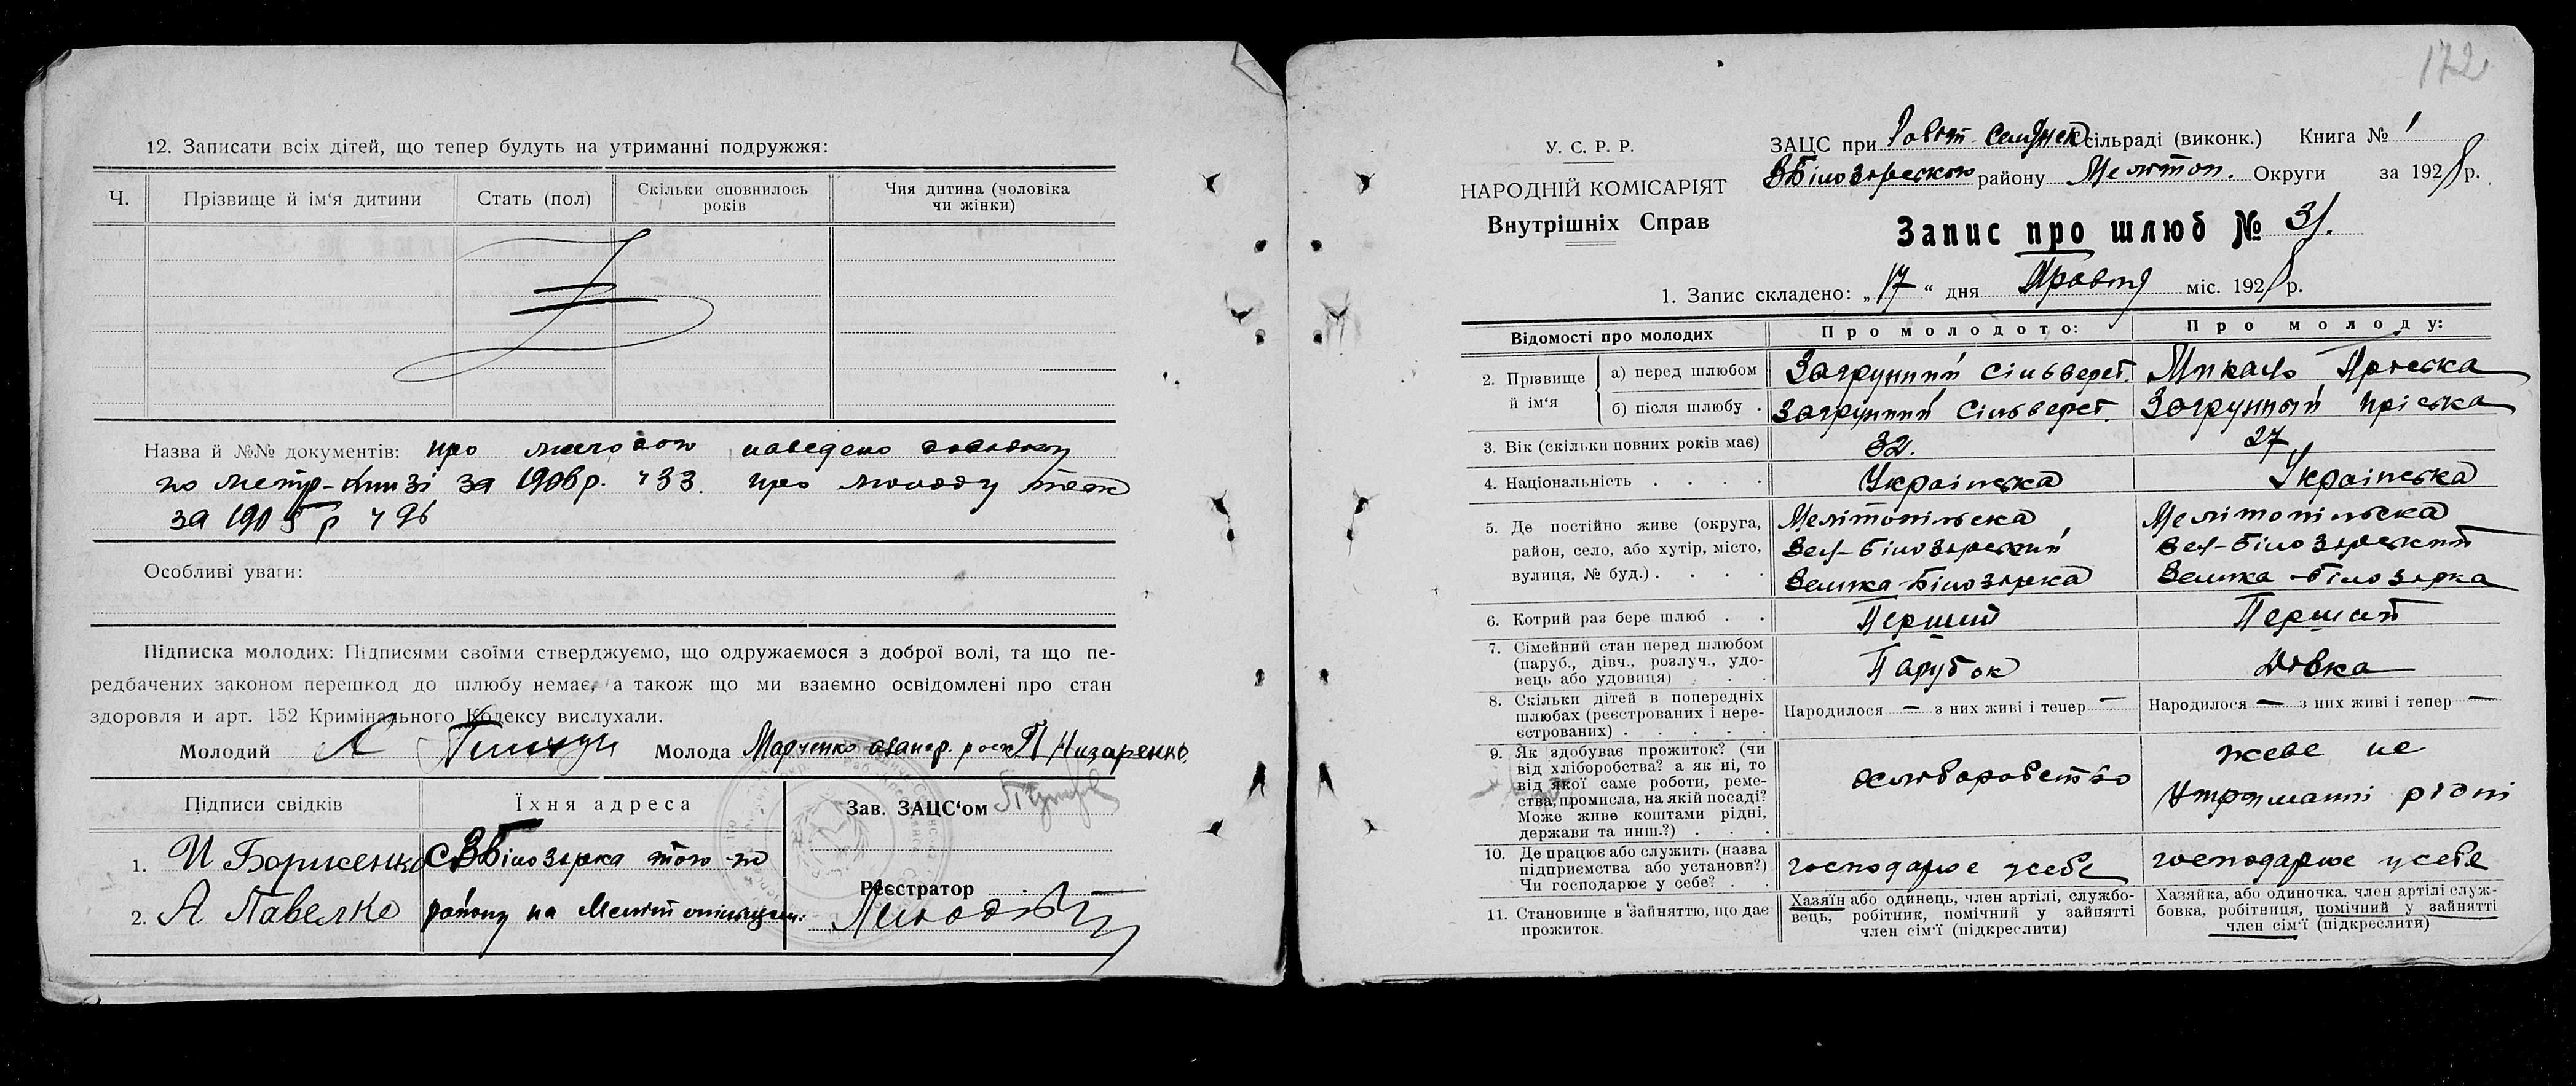 12. Записати всіх дітей, що тепер будуть на утриманні подружжя:
Ч. Прізвище й ім‘я дитини Стать (пол) Скільки сповнилось років Чия дитина (чоловіка чи жінки)
Назва й №№ документів: про наведено
по метр-книзі за 1908р. ч 33. про молоду теж
за 1905 р ч 96
Особливі уваги:
Підписка молодих: Підписями своїми стверджуємо, що одружаємося з доброї волі, та що пе-
редбачених законом перешкод до шлюбу немає, а також що ми взаємно освідомлені про стан
здоровля и арт. 152 Кримінального Кодексу вислухали.
Молодий Молода Марченко
Підписи свідків Їхня адреса Зав. ЗАЦС‘ом
1. И Борисенко с ВБілозірка того-ж
Реєстратор
2. А Павелко району на
172
У. С. Р. Р.
НАРОДНІЙ КОМІСАРІЯТ
Внутрішніх Справ
ЗАЦС при сільраді (виконк.) Книга № 1
ВБілозірського району Мелітоп. Округи за 1928 р.
Запис про шлюб № 31.
1. Запис складено: „17“ дня Травня міс. 1928 р.
Відомості про молодих Про молодого: Про молоду:
2. Прізвище й ім‘я
а) перед шлюбом Загрунний Сільверст. Микало Пріська
б) після шлюбу Загрунний Сільверст. Загрунный Пріська
3. Вік (скільки повних років має) 32. 27
4. Національність Українська Українська
5. Де постійно живе (округа, Мелітопільска Мелітопільска
район, село, або хутір, місто, Вел-Білозірский Вел-Білозірский
вулиця, № буд.) Велика-Білозірка Велика-Білозірка
6. Котрий раз бере шлюб Перший Перший
7. Сімейний стан перед шлюбом
(паруб., дівч., розлуч., удо-
вець або удовиця) Парубок Дівка
8. Скільки дітей в попередніх
шлюбах (реєстрованих і нере-
єстрованих) Народилося — з них живі і тепер — Народилося — з них живі і тепер —
9. Як здобуває прожиток? (чи
від хліборобства? а як ні, то
від якої саме роботи, реме-
ства, промисла, на якій посаді?
Може живе коштами рідні,
держави та инш.?) хліборобство живе на
утриманні рідні
10. Де працює або служить (назва
підприємства або установи?)
Чи господарює у себе? господарює у себе господарює у себе
11. Становище в зайняттю, що дає
прожиток.
Хазяїн або одинець, член артілі, службо-
вець, робітник, помічний у зайнятті
член сім‘ї (підкреслити)
Хазяйка, або одиночка, член артілі служ-
бовка, робітниця, помічний у зайнятті
член сім‘ї (підкреслити)